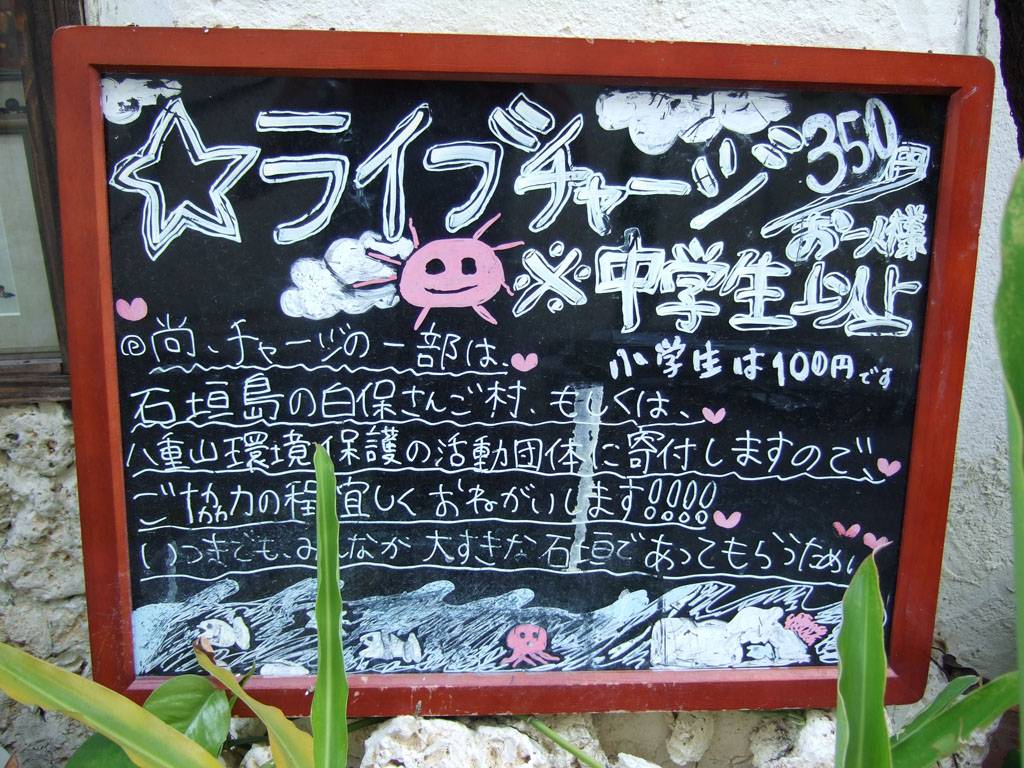 ☆ライブチャージ350円
お一人様
※中学生以上
小学生は100円です
◎尚、チャージの一部は、
石垣島の白保さんご村、もしくは、
八重山環境保護の活動団体に寄付しますので、
ご協力の程宜しくおねがいします!!!!
いつまでも、みんなが大すきな石垣であってもらうため